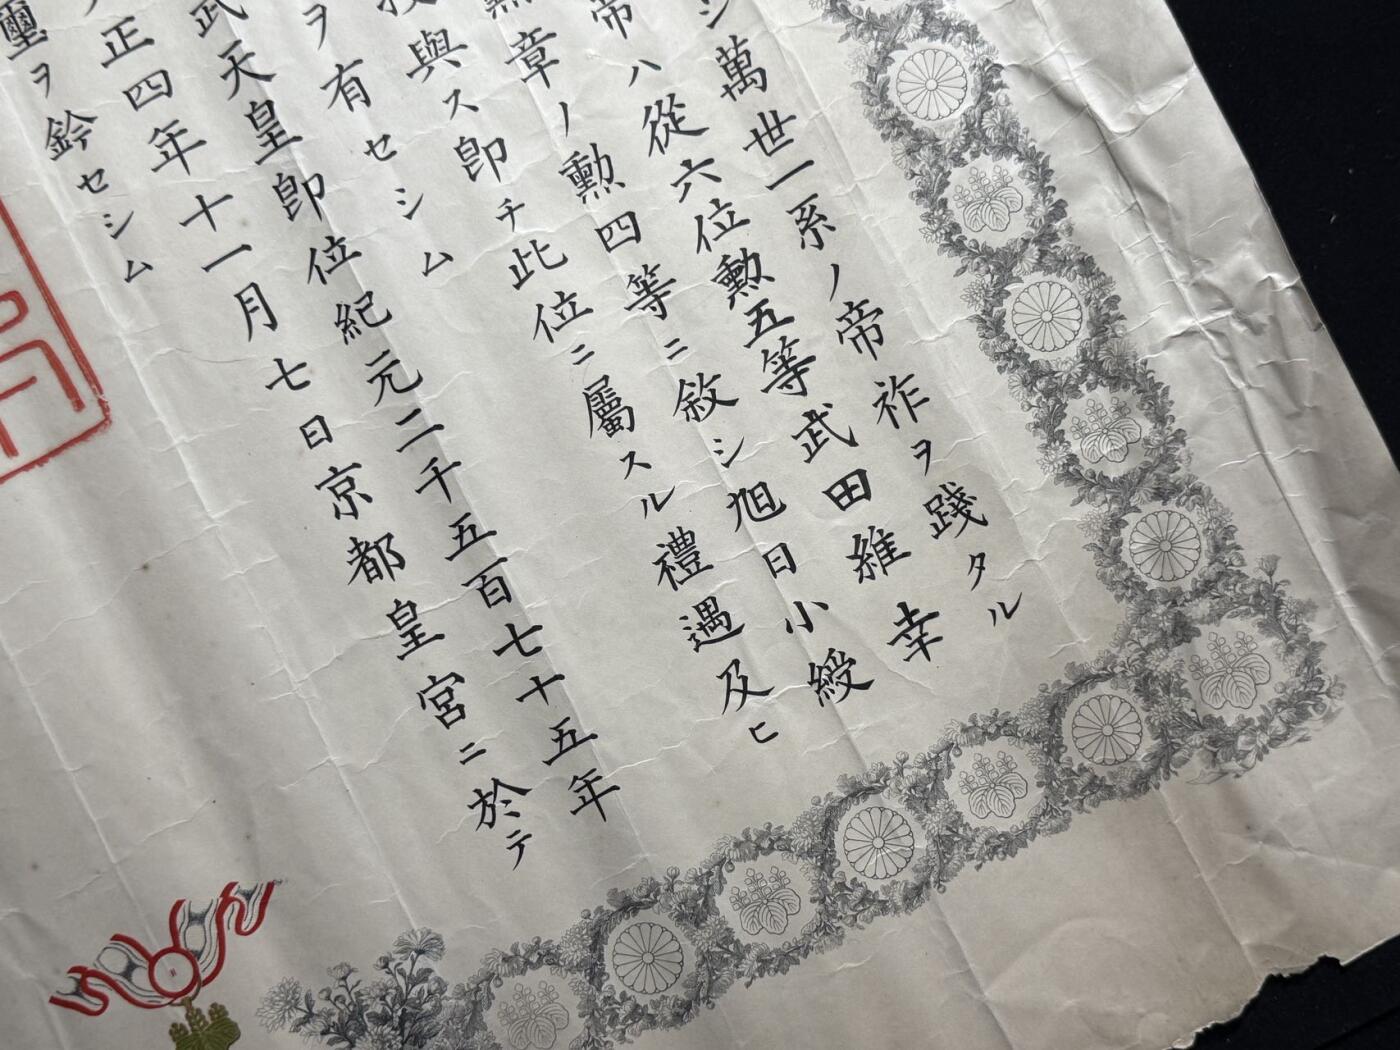 シ萬世一系ノ帝祚ヲ踐タル
帝ハ從六位勲五等武田維幸
勲章ノ勲四等ニ敘シ旭日小綬
與ス卽チ此位ニ屬スル禮遇及ヒ
ヲ有セシム
武天皇卽位紀元二千五百七十五年
正四年十一月七日京都皇宮ニ於テ
璽ヲ鈐セシム